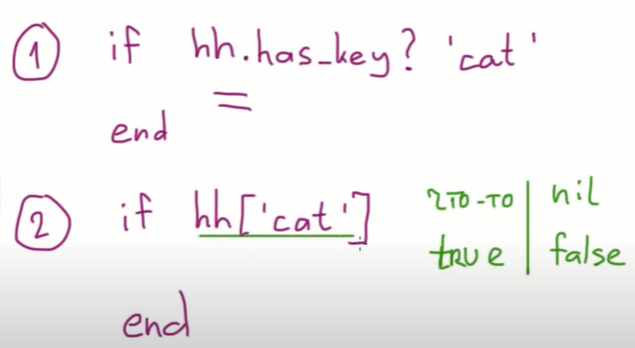 1 if hh.has_key? 'cat'
end
2 if hh['cat']
что-то | nil
true | false
end